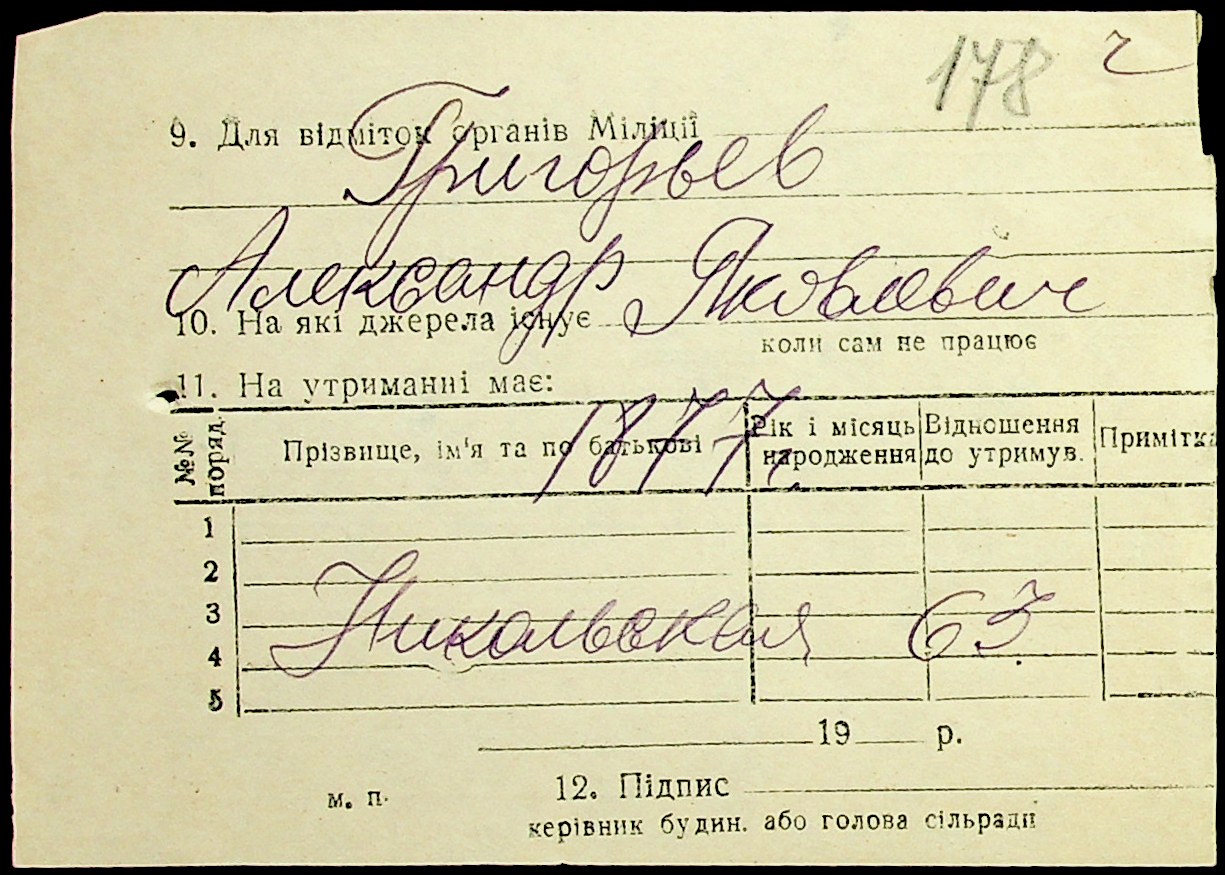 178 ч
9. Для відміток органів Міліції
Григорьев
Александр Яковлевич
10. На які джерела існує
коли сам не працює
11. На утриманні має:
1877
№№ поряд.
Прізвище, ім'я та по батькові
Рік і місяць народження
Відношення до утримув.
Примітка
1
2
Никольская 63
3
4
5
19 р.
м. п.
12. Підпис
керівник будин. або голова сільради